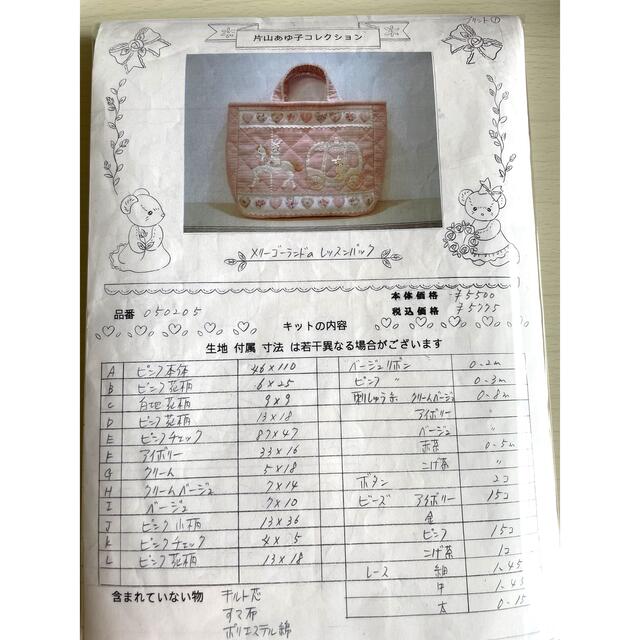 プリント①
片山あゆ子コレクション
メリーゴーランドのレッスンバック
本体価格 ¥5500
税込価格 ¥5775
品番 050205
キットの内容
生地 付属 寸法 は若干異なる場合がございます
A ピンク本体 46×110 ベージュリボン 0.2m
B ピンク花柄 6×25 ピンク 〃 0.3m
C 白地花柄 9×9 刺しゅう糸 クリームベージュ 0.8m
D ピンク花柄 13×18 アイボリー 〃
E ピンクチェック 87×47 ベージュ 〃
F アイボリー 33×16 赤茶 0.5m
G クリーム 5×18 こげ茶 〃
H クリームベージュ 7×14 ボタン 2コ
I ベージュ 7×10 ビーズ アイボリー 15コ
J ピンク小柄 13×36 金
K ピンクチェック 4×5 ピンク 15コ
L ピンク花柄 13×18 こげ茶 1コ
レース 細 1.45
中 1.45
太 0.15
含まれていない物 キルト芯
すて布
ポリエステル綿